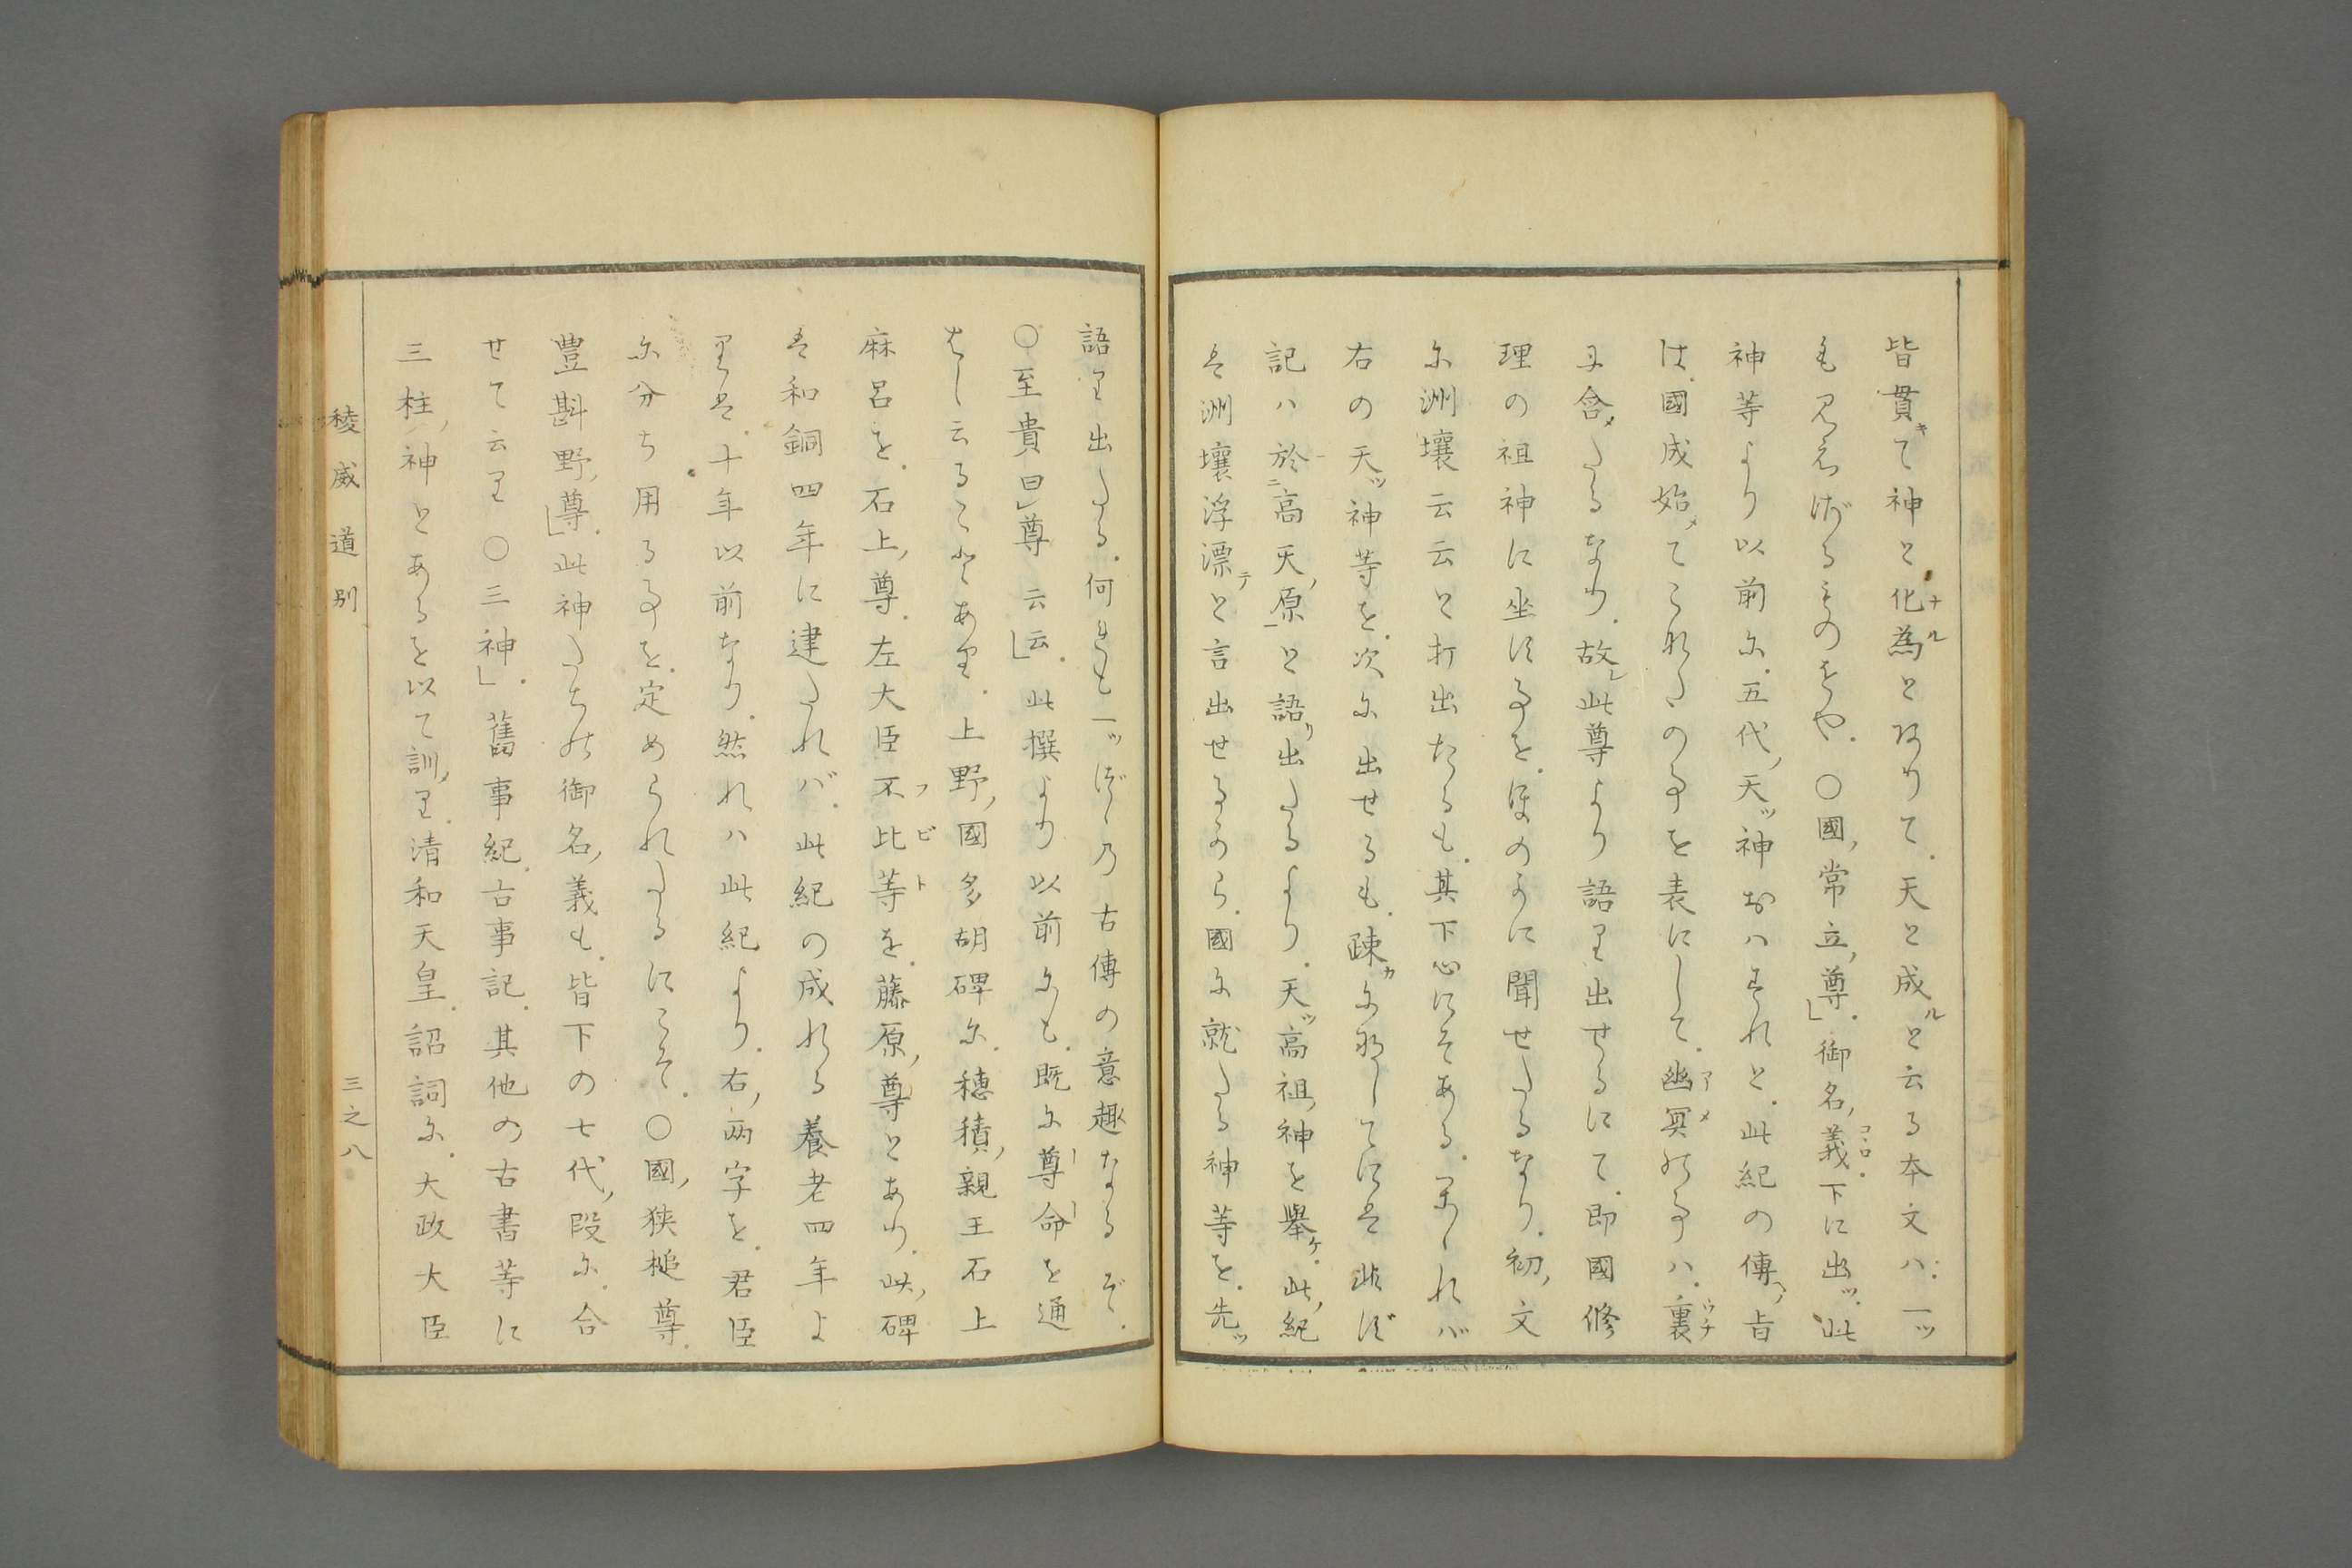 皆貫キて神と化爲ナルとありて.天と成ルと云る本文ハ.一ッ
も見えざるものをや.〇國ノ常立ノ尊」.御名ノ義コヽロ.下に出ッ.此
神等より以前に.五代ノ天ッ神おハすれと.此紀の傳ヘノ旨
は.國成始メてこれらの事を表にして.幽冥アメの事ハ.裏ウチ
に含メたるなり.故レ此尊より語り出せるにて.即國修
理の祖神に坐す事を.ほのかに聞せたるなり.初ノ文
に洲壤云云と打出たるも.其下心にそある.然れバ
右の天ッ神等を.次に出せるも.疎カに為してには非ず
記ハ於ニ高天ノ原一と語リ出たるより.天ッ高祖ノ神を擧ケ.此ノ紀
は洲壤浮漂テと言出せるから.國に就たる神等を.先ッ
語り出たる.何れも一ッづゝの古傳の意趣なるぞ.
〇至貴曰尊云云」.此撰より以前にも.既に尊命を通
はし云ることあり.上野ノ國多胡碑に.穗積ノ親王石上
麻呂を.石上ノ尊.左大臣不比等フビトを.藤原ノ尊とあり.此ノ碑
は和銅四年に建たれバ.此紀の成れる養老四年よ
りは.十年以前なり.然れハ此紀より.右ノ兩字を.君臣
に分ち用る事を.定められたるにこそ.〇國ノ狹槌尊.
豐斟野ノ尊」.此神たちの御名ノ義も.皆下の七代ノ段に.合
せて云り〇三神」.舊事紀.古事記.其他の古書等に
三柱ノ神とあるを以て訓メり.清和天皇.詔詞に.大政大臣
稜威道別
三之八